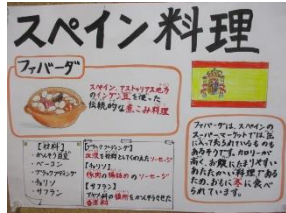 スペイン料理
ファバーダ
スペイン、アストゥリアス地方
のインゲン豆を使った
伝統的な煮こみ料理
【材料】
・かんそう豆
・ベーコン
・ブラックプディング
・チョリソ
・サフラン
【ブラックプディング】
血液を材料としてくわえたソーセージ
【チョリソ】
豚肉の腸詰めのソーセージ
【サフラン】
アヤメ科の
をかんそうさせた
ファバーダは、スペインの
スーパーマーケットでは、缶
に入って売られているものも
あるそうです。カロリーが
高く、お腹にたまりやすい
あたたかい料理であるた
め、おもに冬に食べ
られています。